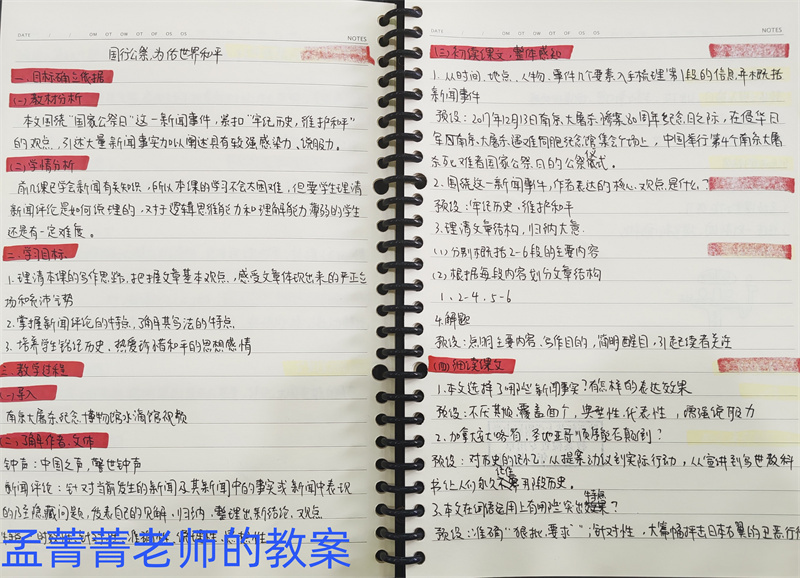 DATE
OM OT OF OS OS
NOTES
国行公祭,为佑世界和平
一.目标确立依据
(一)教材分析
本文围绕"国家公祭日"这一新闻事件,紧扣"牢记历史,维护和平"
的观点,引述大量新闻事实加以阐述具有较强感染力、说服力。
(二)学情分析
前几课已学会新闻有关知识,所以本课的学习不会太困难,但要学生理清
新闻评论是如何说理的,对于逻辑思维能力和理解能力薄弱的学生
还是有一定难度。
二.学习目标
1.理清本课的写作思路,把握文章基本观点,感受文章体现出来的严正立
场和充沛气势
2.掌握新闻评论的特点,了解其写法的特点
3.培养学生铭记历史、热爱珍惜和平的思想感情
三.教学过程
(一)导入
南京大屠杀纪念博物馆水滴馆视频
(二)了解作者、文体
钟声:中国之声,警世钟声
新闻评论:针对当前发生的新闻及其新闻中的事实或新闻中表现
隐藏问题,发表自己的见解,归纳、整理出新结论、观点
孟菁菁老师的教案
DATE
OM OT OF OS OS
NOTES
(三)初读课文,整体感知
1.从时间、地点、人物、事件几个要素入手梳理第1段的信息,并概括
新闻事件
预设:2017年12月13日南京大屠杀惨案80周年纪念日之际,在侵华日
军南京大屠杀遇难同胞纪念馆集会广场上,中国举行第4个南京大屠
杀死难者国家公祭日的公祭仪式。
2.围绕这一新闻事件,作者表达的核心观点是什么?
预设:牢记历史,维护和平
3.理清文章结构,归纳大意
(1)分别概括2-6段的主要内容
(2)根据每段内容划分文章结构
1、2-4、5-6
4.解题
预设:点明主要内容、写作目的,简明醒目,引起读者关注
(四)细读课文
1.本文选择了哪些新闻事实?有怎样的表达效果
预设:不厌其烦,覆盖面广,典型性、代表性,增强说服力
2.加拿大安大略省、圣地亚哥顺序能否颠倒?
预设:对历史的记忆,从提案动议到实际行动,从宣讲到多世教科
书让人们永久记住那段历史。
3.本文在词语运用上有哪些突出特点?
预设:准确"狠批、要求";针对性,大篇幅抨击日本右翼的丑恶行径